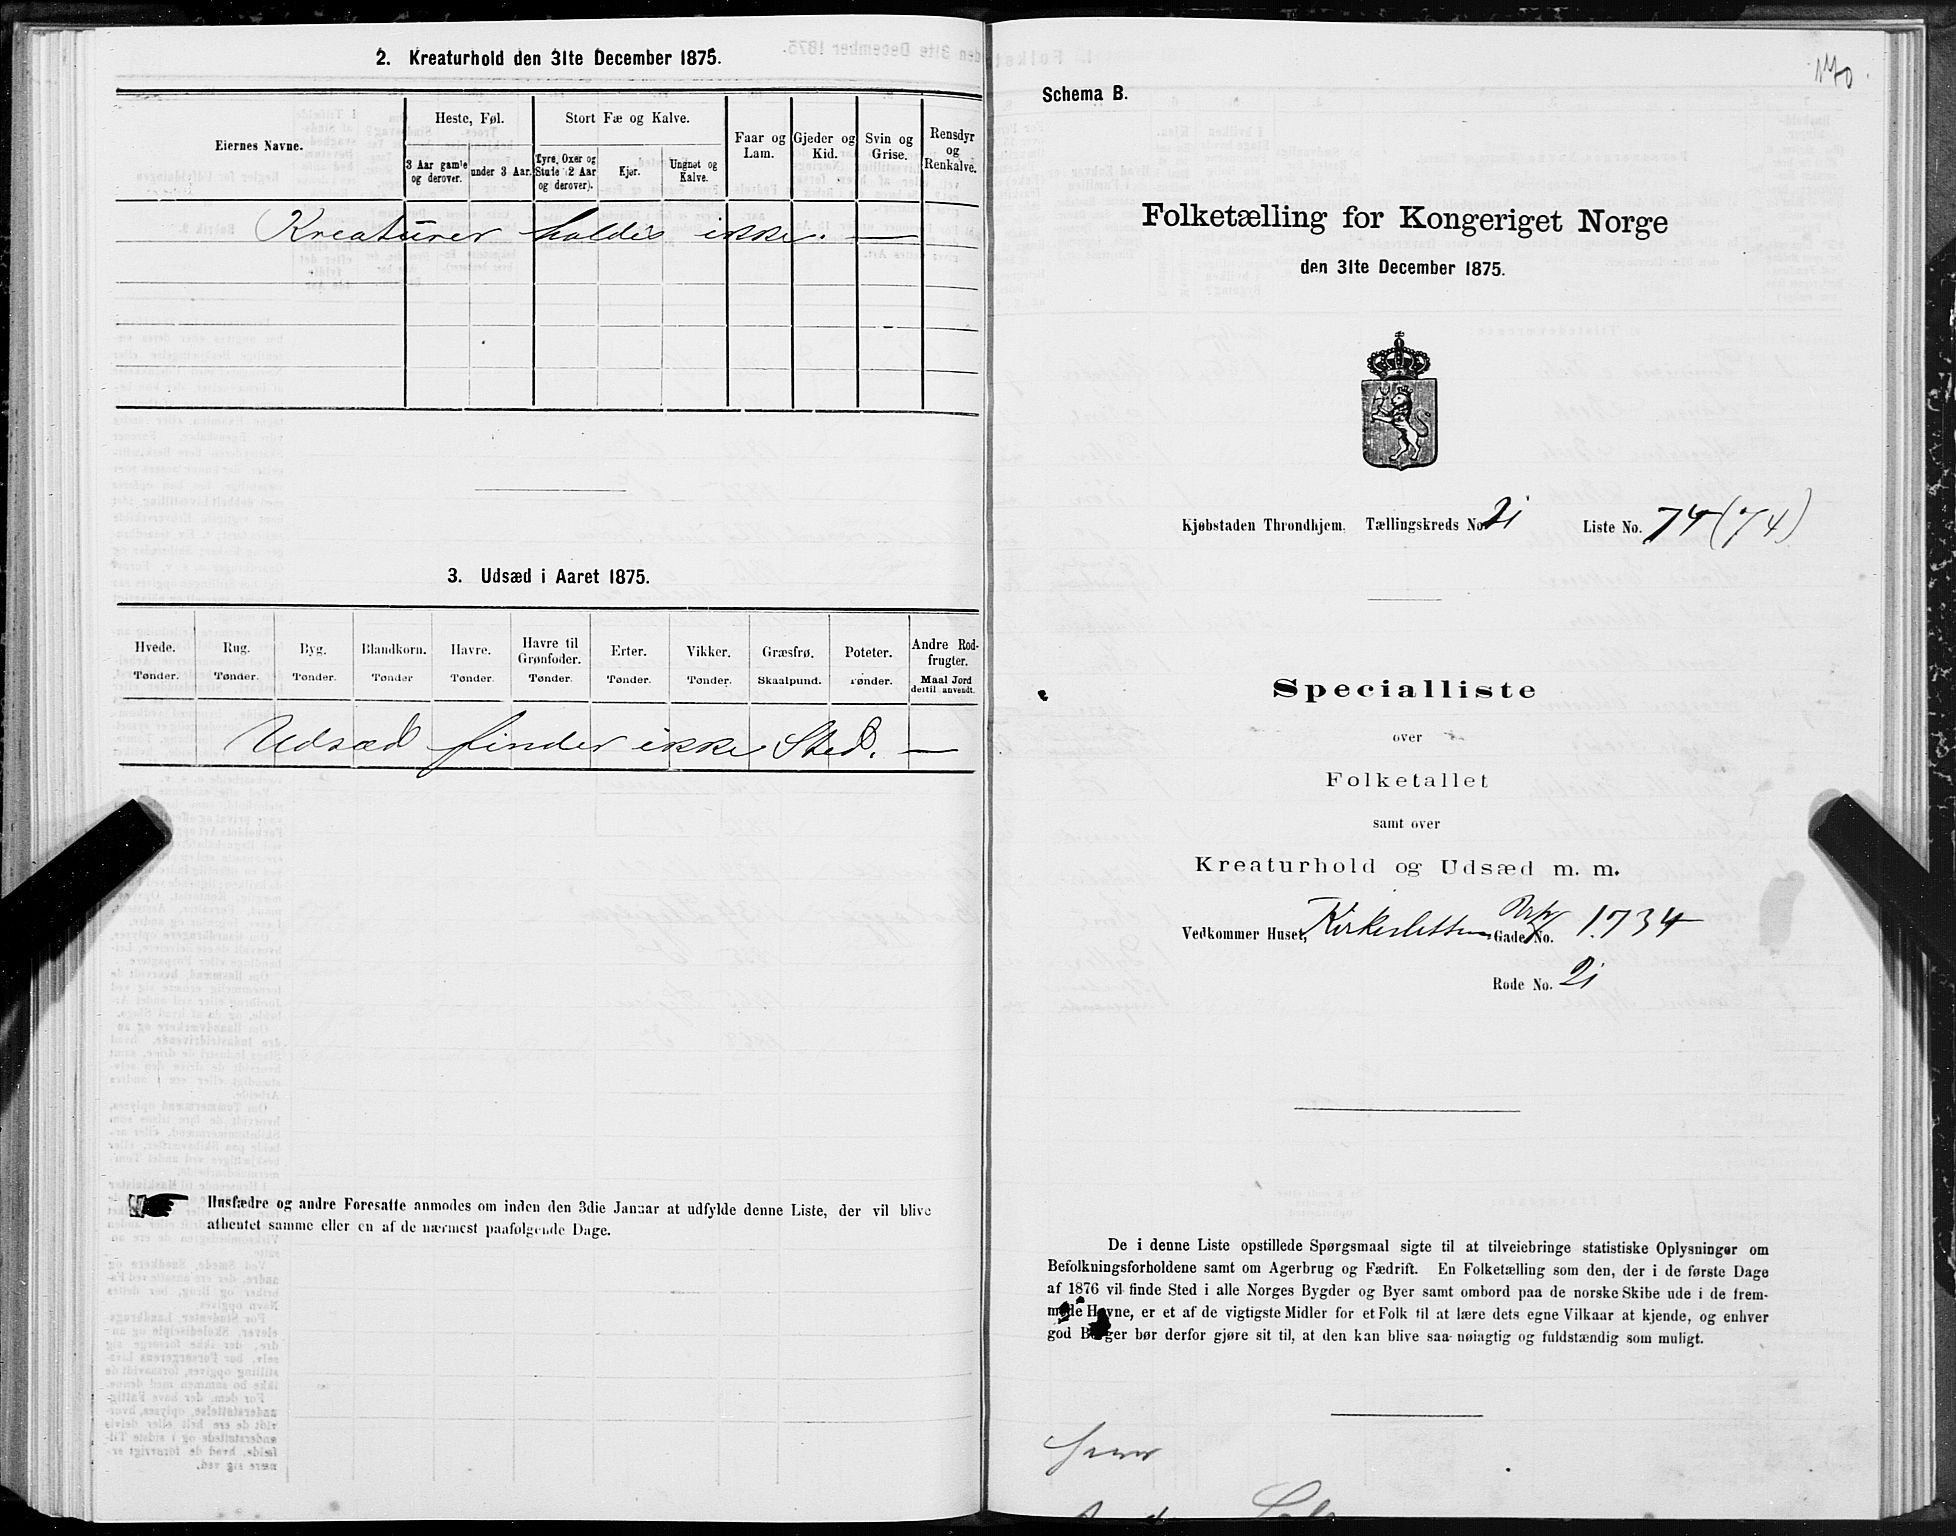 2. Kreaturhold den 31te December 1875.
Eiernes Navne.
Heste, Føl.
3 Aar gamle og derover.
under 3 Aar.
Stort Fæ og Kalve.
Tyre, Oxer og Stude (2 Aar og derover).
Kjør.
Ungnøt og Kalve.
Faar og Lam.
Gjeder og Kid.
Svin og Grise.
Rensdyr og Renkalve.
Kreaturer holdes ikke. —
3. Udsæd i Aaret 1875.
Hvede. Rug. Byg. Blandkorn. Havre. Havre til Grønfoder. Erter. Vikker. Græsfrø. Poteter. Andre Rodfrugter.
Tønder. Tønder. Tønder. Tønder Tønder. Tønder. Tønder. Tønder. Skaalpund. Tønder. Maal Jord dertil anvendt.
Udsæd finder ikke Sted. —
Husfædre og andre Foresatte anmodes om inden den 3die Januar at udfylde denne Liste, der vil blive
afhentet samme eller en af de nærmest paafølgende Dage.
170.
Schema B.
Folketælling for Kongeriget Norge
den 31te December 1875.
Kjøbstaden Throndhjem. Tællingskreds No. 21 Liste No. 74 (74)
Specialliste
over
Folketallet
samt over
Kreaturhold og Udsæd m. m.
Vedkommer Huset, Gade No. 1734
Rode No. 21
De i denne Liste opstillede Spørgsmaal sigte til at tilveiebringe statistiske Oplysninger om
Befolkningsforholdene samt om Agerbrug og Fædrift. En Folketælling som den, der i de første Dage
af 1876 vil finde Sted i alle Norges Bygder og Byer samt ombord paa de norske Skibe ude i de frem-
mede Havne, er et af de vigtigste Midler for et Folk til at lære dets egne Vilkaar at kjende, og enhver
god Borger bør derfor gjøre sit til, at den kan blive saa nøiagtig og fuldstændig som muligt.